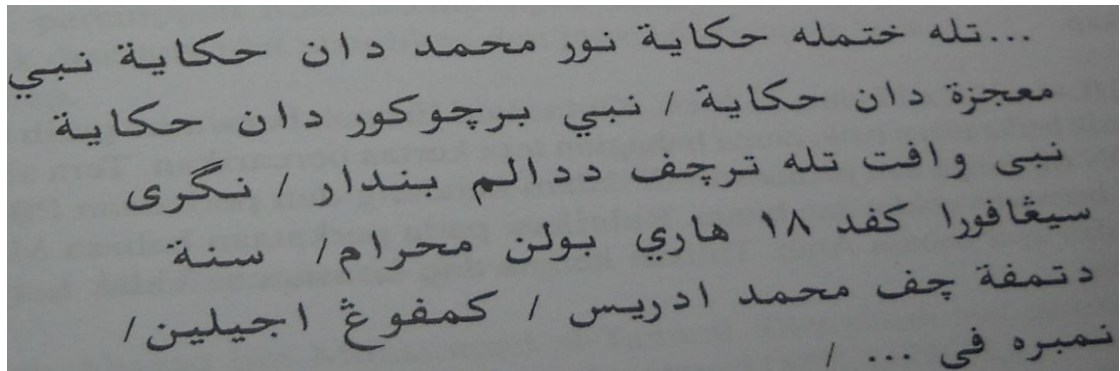 ...تله ختمله حكاية نور محمد دان حكاية نبي
معجزة دان حكاية / نبي برچوكور دان حكاية
نبى وافت تله ترچف ددالم بندار / نگرى
سيڠافورا كفد ١٨ هاري بولن محرام/ سنة
دتمفة چف محمد ادريس / كمفوڠ اجيلين/
نمبره في ... /